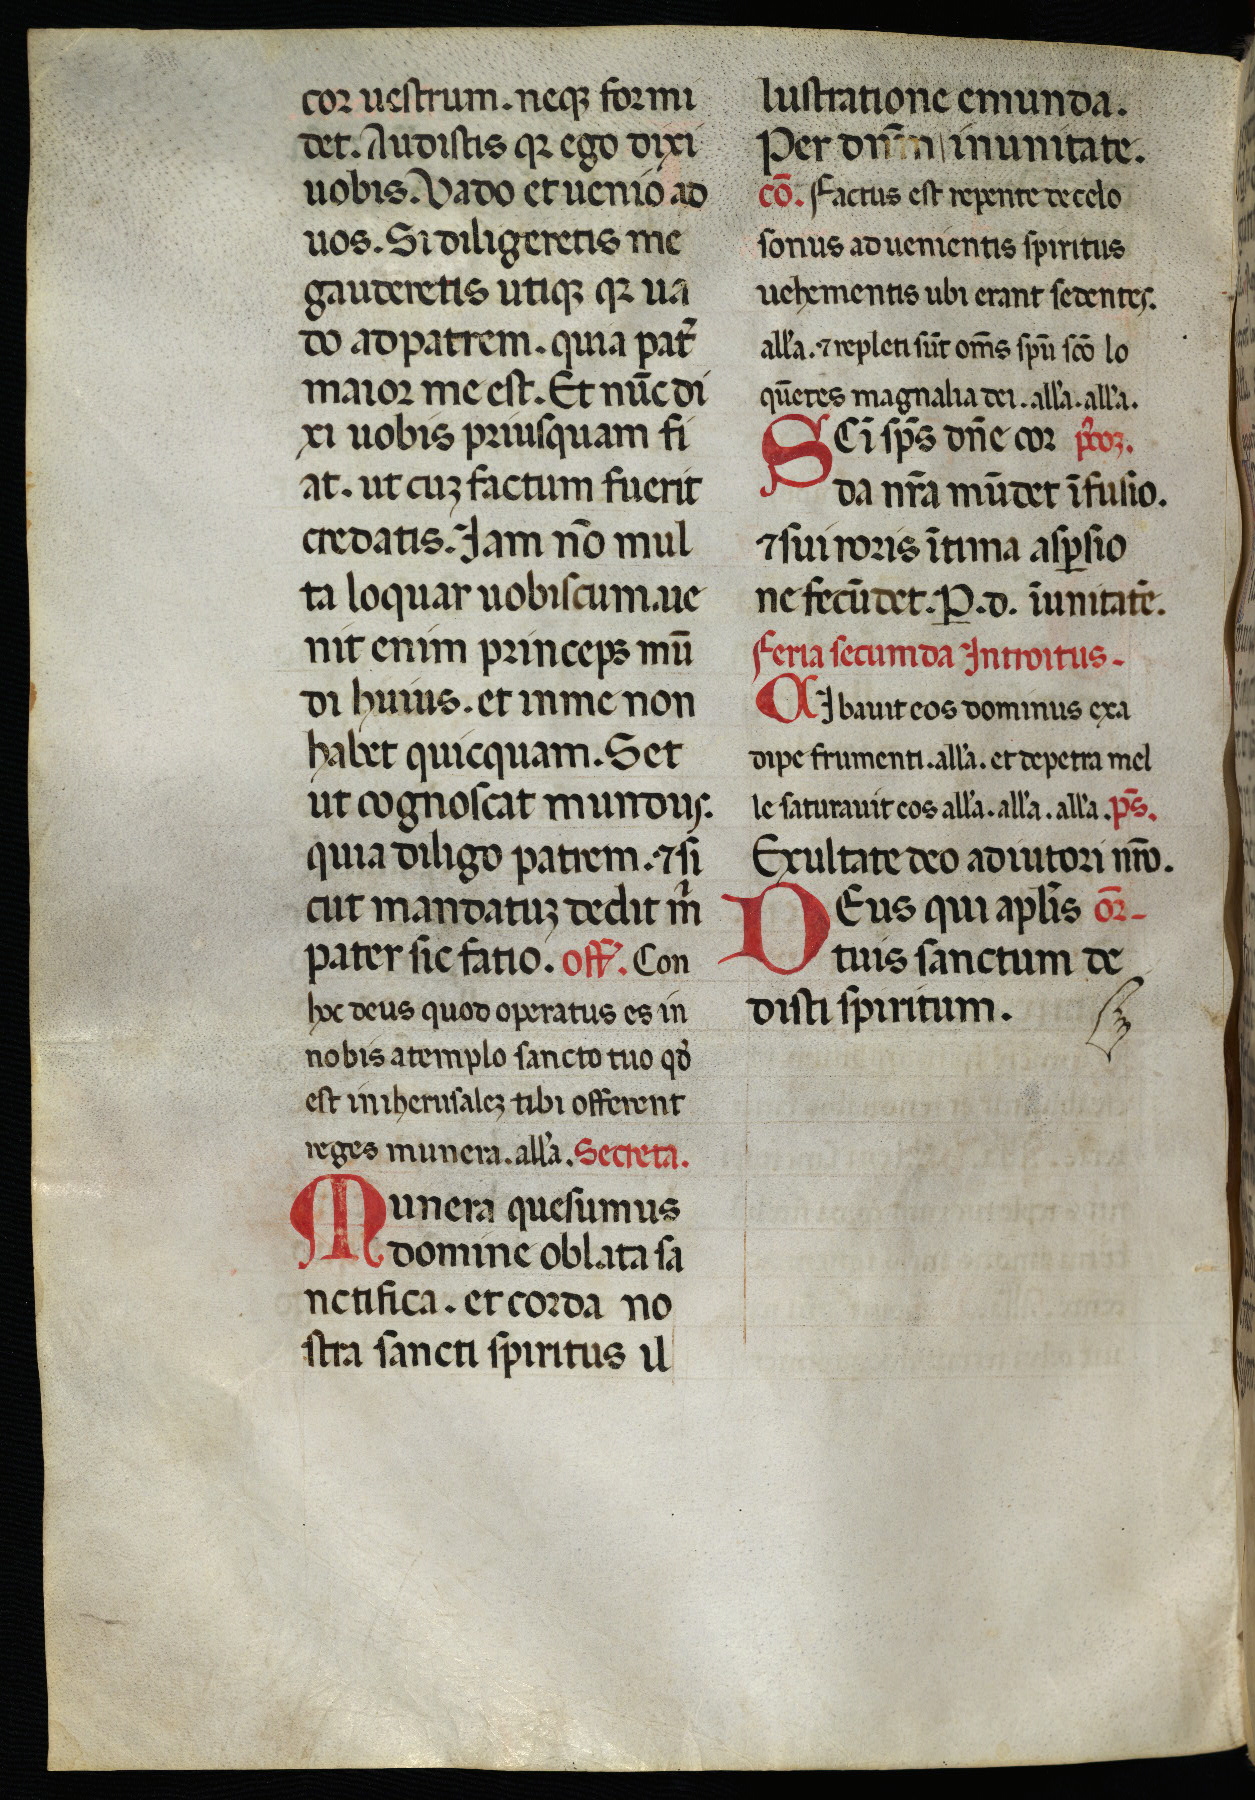 cor uestrum. neqꝫ formi
det. Audistis qꝛ ego dixi
uobis. Vado et uenio ad
uos. Si diligeretis me
gauderetis utiqꝫ qꝛ ua
do ad patrem. quia pat̄
maior me est. Et nūc di
xi uobis priusquam fi
at. ut cuꝫ factum fuerit
credatis. Iam nō mul
ta loquar uobiscum. ue
nit enim princeps mū
di huius. et in me non
habet quicquam. Set
ut cognoscat mundus.
quia diligo patrem. ⁊ si
cut mandatuꝫ dedit m̄
pater sic fatio. Off̄. Con
hoc deus quod operatus es in
nobis a templo sancto tuo qd̄
est in iherusaleꝫ tibi offerent
reges munera. all'a. Secreta.
Munera quesumus
domine oblata sa
nctifica. et corda no
stra sancti spiritus il
lustratione emunda.
Per dn̄m in unitate.
cō. Factus est repente de celo
sonus aduenientis spiritus
uehementis ubi erant sedentes.
all'a. ⁊ repleti sūt om̄s spū scō lo
quētes magnalia dei. all'a. all'a.
SCī sp̄s dn̄e cor p̄coꝫ.
da nr̄a mūdet īfusio.
⁊ sui roris ītima asꝑsio
ne fecūdet. P. d. ī unitatē.
Feria secunda Introitus.
CIbauit eos dominus ex a
dipe frumenti. all'a. et de petra mel
le saturauit eos all'a. all'a. all'a. ps̄.
Exultate deo adiutori nr̄o.
DEus qui apl'is oꝛ̄
tuis sanctum de
disti spiritum.